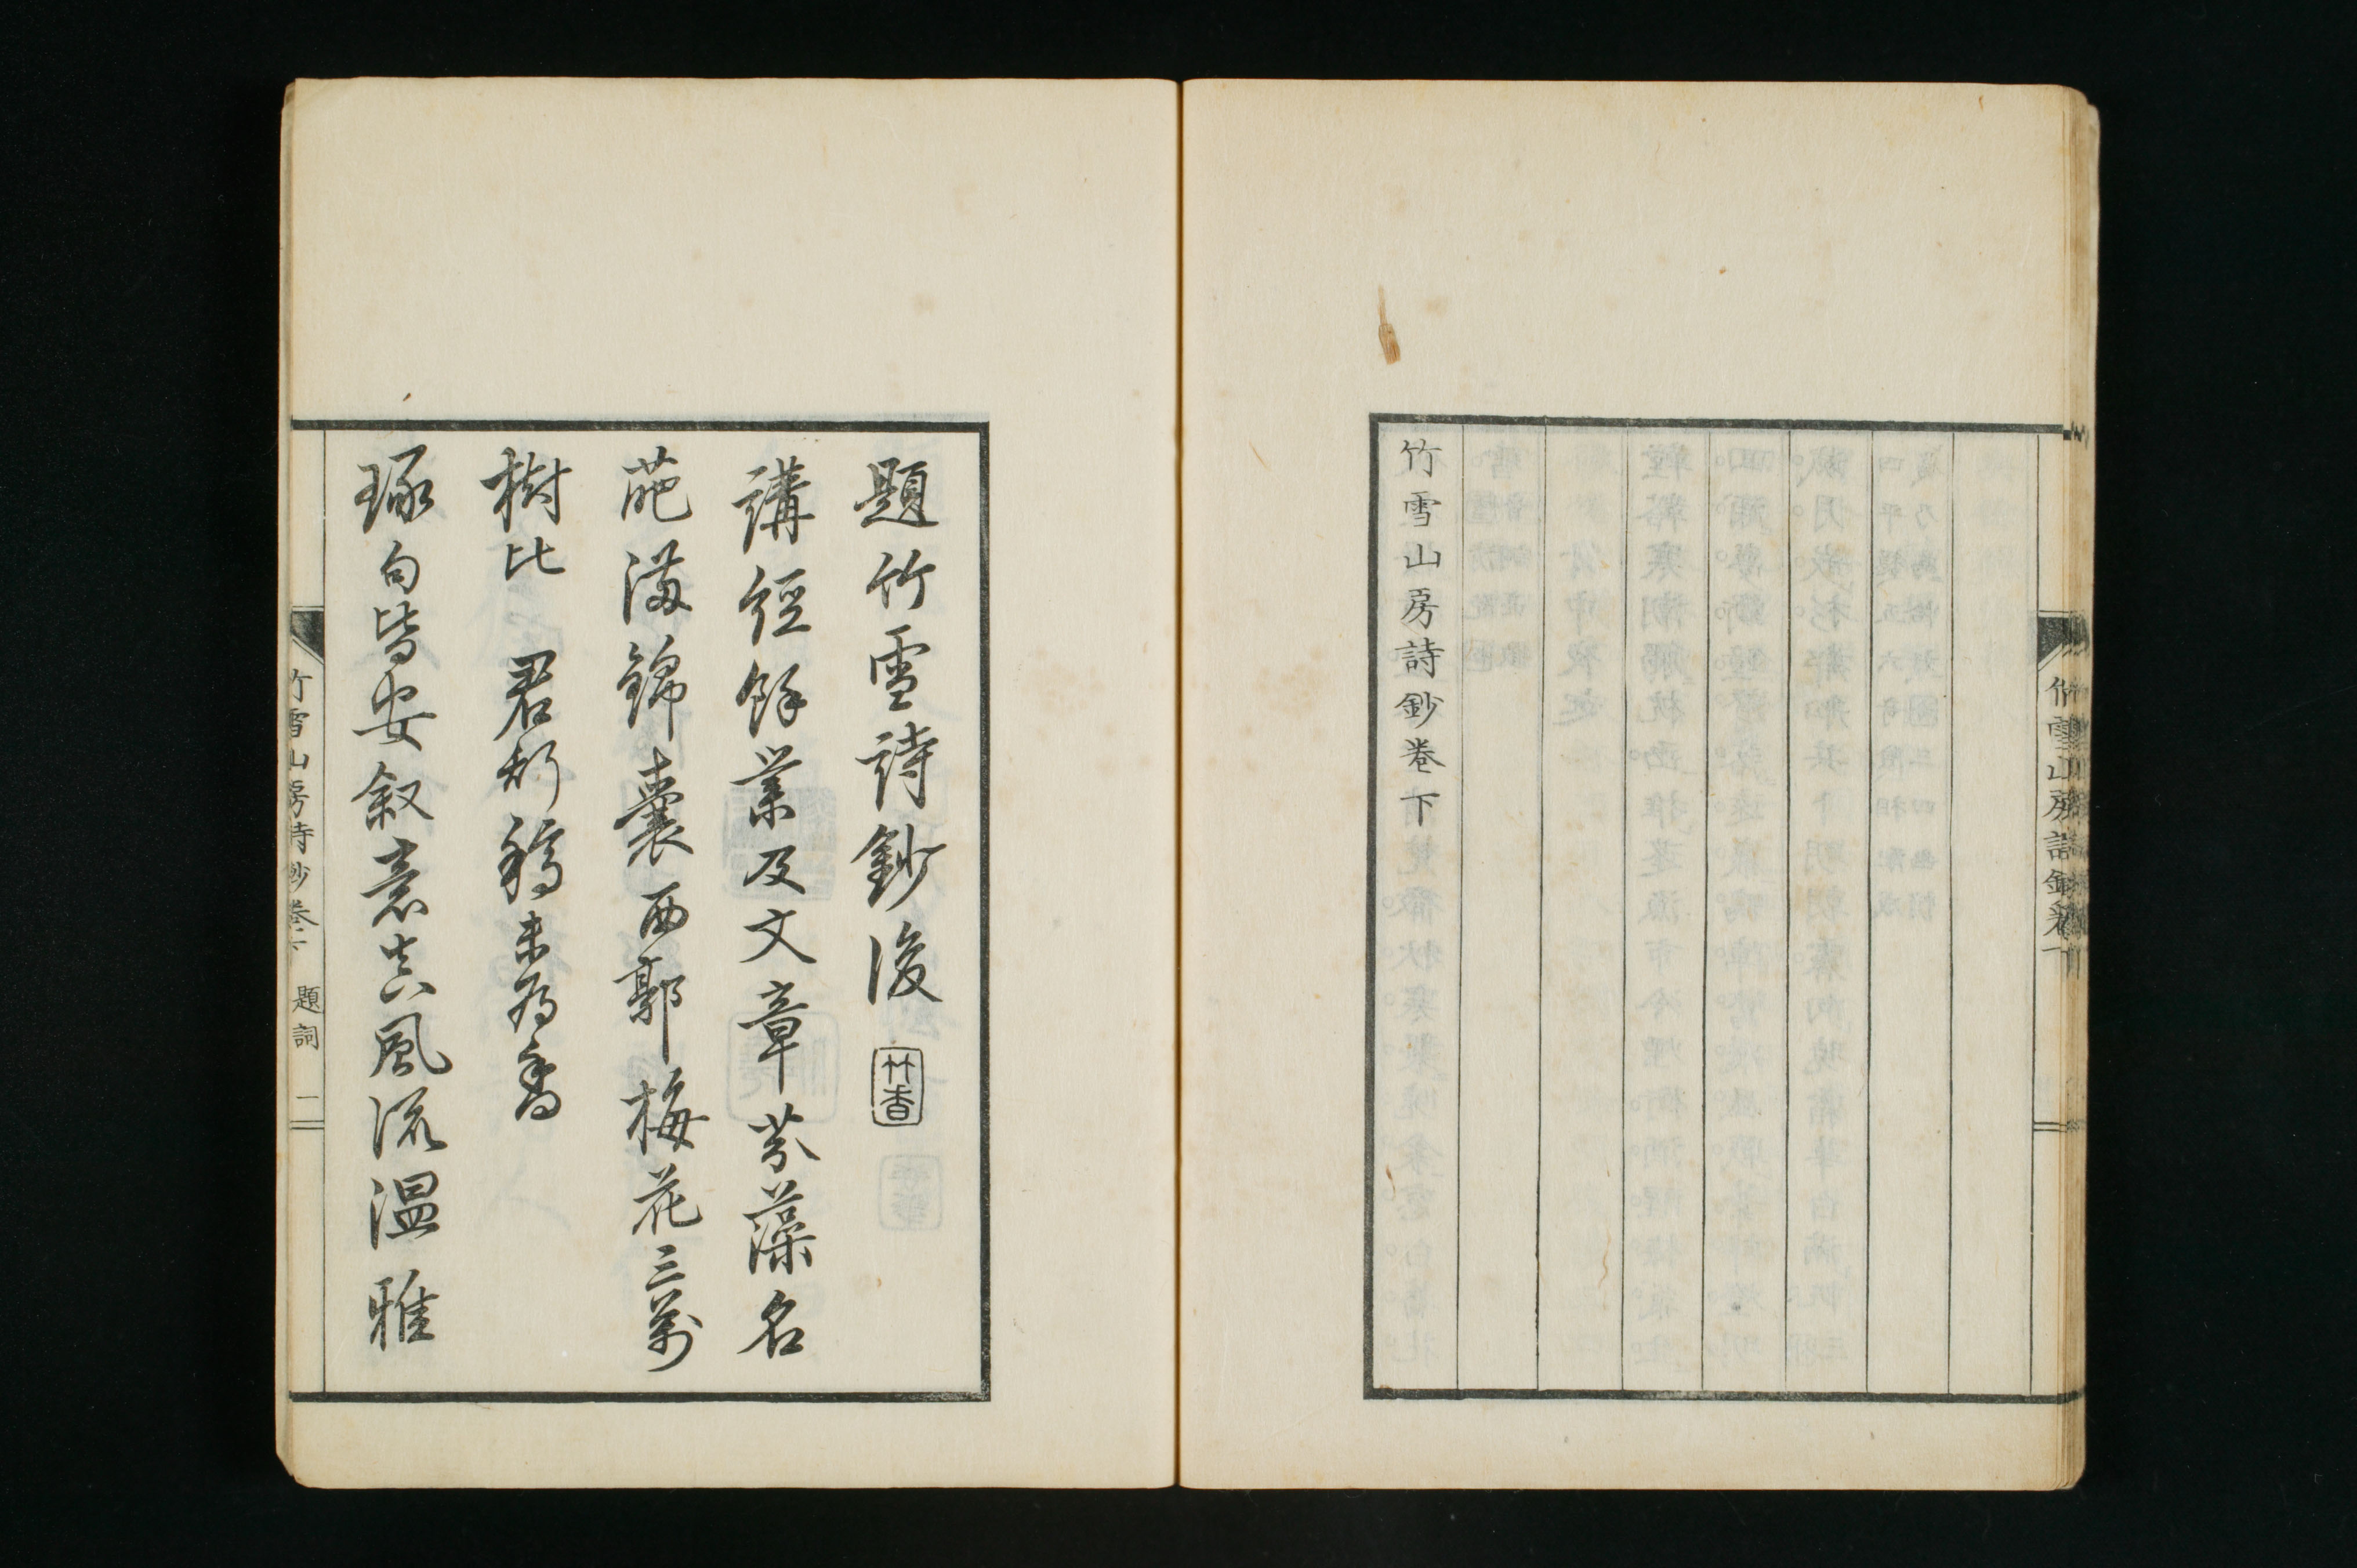 竹雪山房詩鈔卷下
竹雪山房詩鈔卷下
題竹雪詩鈔後
竹香
講經餘業及文章芬藻名
葩滿錦囊西郭梅花三萬
樹比 君新稿未為香
琢句皆安叙意真風流温雅
竹雪山房詩鈔卷下 題詞 二